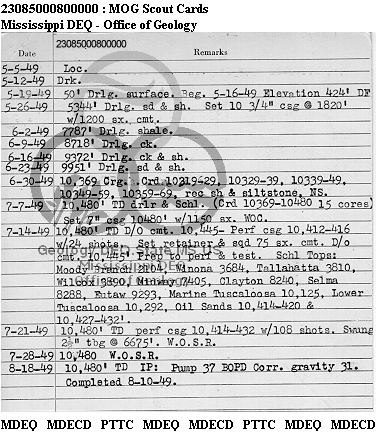 23085000800000 : MOG Scout Cards
Mississippi DEQ - Office of Geology
23085000800000
Date Remarks
5-5-49 Loc.
5-12-49 Drk.
5-19-49 50' Drlg. surface. Beg. 5-16-49 Elevation 424' DF
5-26-49 5344' Drlg. sd & sh. Set 10 3/4" csg @ 1820'
w/1200 sx. cmt.
6-2-49 7787' Drlg. shale.
6-9-49 8718' Drlg. ck.
6-16-49 9372' Drlg. ck & sh.
6-23-49 9951' Drlg. sd & sh.
6-30-49 10,369 Crg. (Crd 10319-29, 10329-39, 10339-49,
10349-59, 10359-69, rec sh & siltstone, NS.
7-7-49 10,480' TD drlr & Schl. (Crd 10369-10480 15 cores)
Set 7" csg 10480' w/1150 sx. WOC.
7-14-49 10,480' TD D/O cmt. 10,445- Perf csg 10,412-416
w/24 shots. Set retainer & sqd 75 sx. cmt. D/o
cmt. 10,445' Prep to perf & test. Schl Tops:
Moody Branch, Winona 3684, Tallahatta 3810,
Wilcox 3890, Midway 7405, Clayton 8240, Selma
8288, Eutaw 9293, Marine Tuscaloosa 10,125, Lower
Tuscaloosa 10,292, Oil Sands 10,414-420 &
10,427-432'.
7-21-49 10,480' TD perf csg 10,414-432 w/108 shots. Swung
2½" tbg @ 6675'. W.O.S.R.
7-28-49 10,480 W.O.S.R.
8-18-49 10,480' TD IP: Pump 37 BOPD Corr. gravity 31.
Completed 8-10-49.
MDEQ MDECD PTTC MDEQ MDECD PTTC MDEQ MDECD